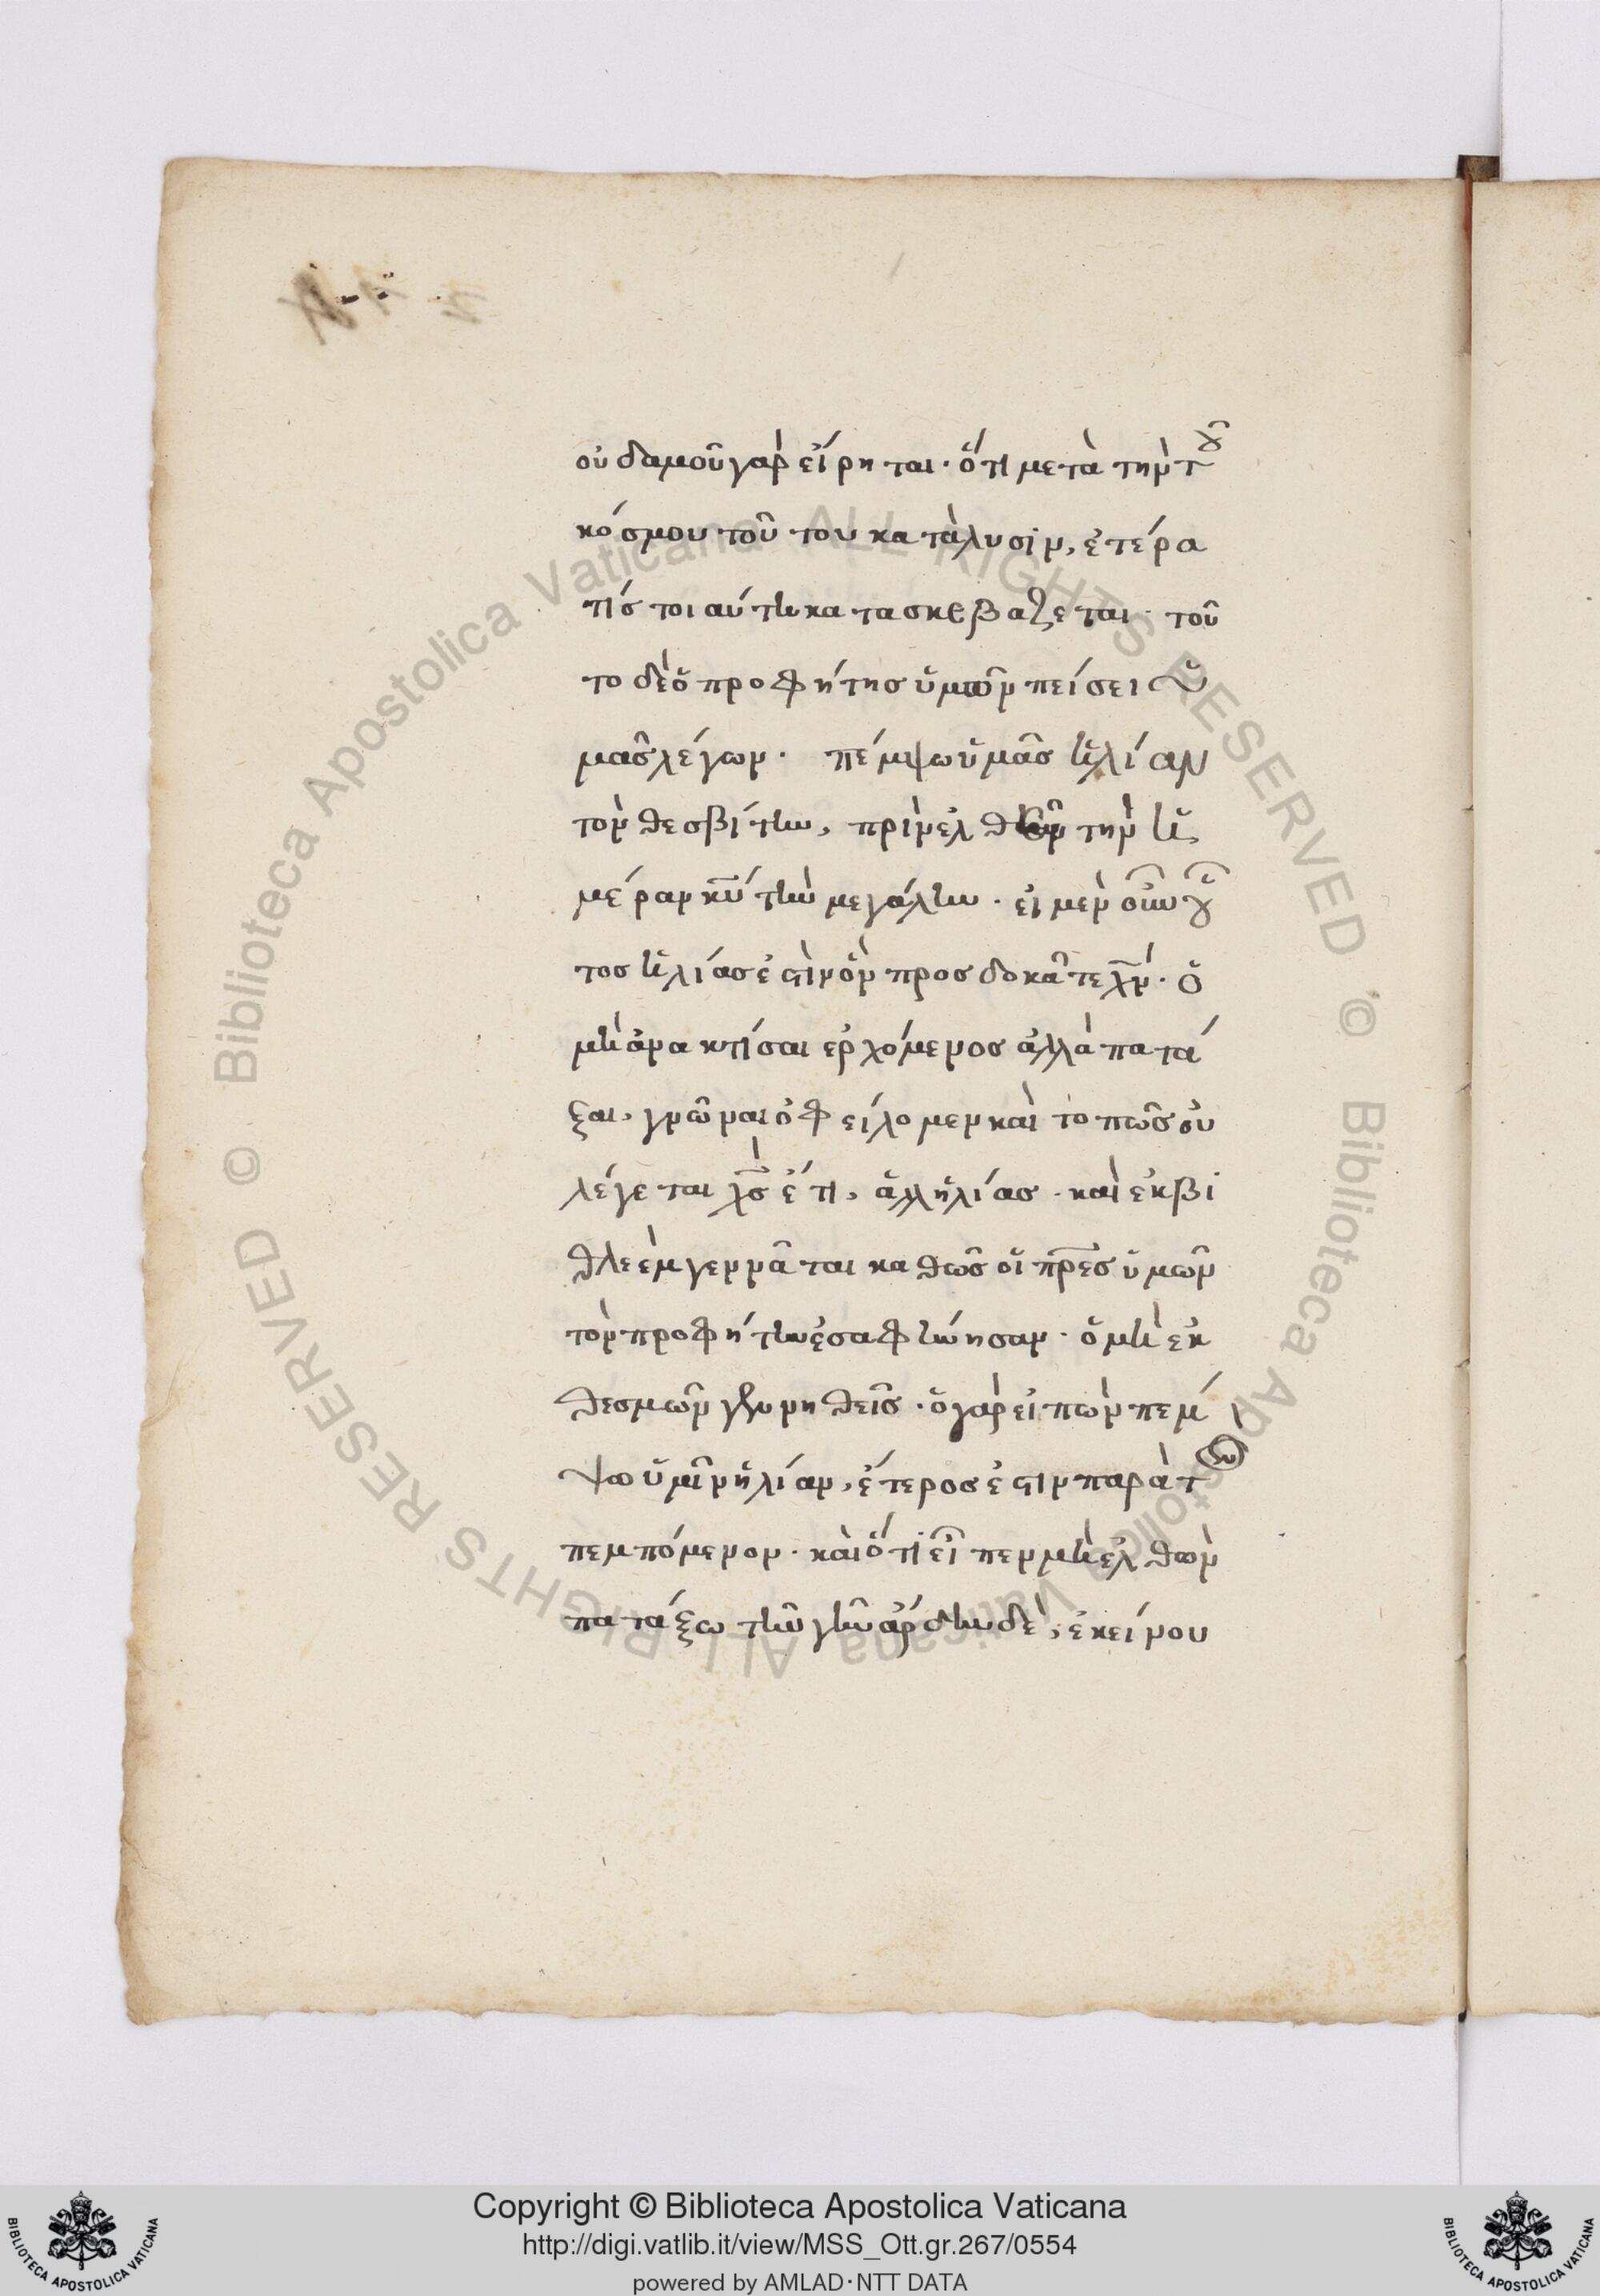 οὐδαμοῦ γαρ εἴρηται· ὅτι μετὰ τὴν τοῦ
κόσμου τούτου κατάλυσιν, ἑτέρα
τίς τοιαύτη κατασκεβαζεται· τοῦ
το δὲ ὁ προφήτης ὑμῶν πείσει ὑ
μᾶς λέγων· πέμψω ὑμᾶς ἡλίαν
τὸν θεσβίτην, πρὶν ἐλθεῖν τὴν ἡ
μέραν κυ τὴν μεγάλην· εἰ μὲν οὖν οὗ
τος ἡλίας ἐστὶν ὃν προσδοκᾶτε χν· ὁ
μὴ ἄρα κτίσαι ερχόμενος ἀλλὰ πατά
ξαι, γνῶναι ὀφείλομεν καὶ το πῶς οὐ
λέγεται χς ἔτι, ἀλλ ἡλίας· καὶ ἐκ βι
θλεὲμ γεννᾶται καθῶς οἱ πρες ὑμῶν
τὸν προφήτην ἐσαφήνησαν· ὁ μὴ ἐκ
θεσμῶν γενηθεὶς· ὁ γὰρ εἰπὼν πέμ
ψω ὑμῖν ἡλίαν, ἕτερος ἐστιν παρὰ τὸν
πεμπόμενον· καὶ ὅτι εἴπεν μὴ ἐλθὼν
πατάξω τὴν γῆν ἄρδην δὲ, ἐκείνου
Copyright © Biblioteca Apostolica Vaticana
http://digi.vatlib.it/view/MSS_Ott.gr.267/0554
powered by AMLAD·NTT DATA